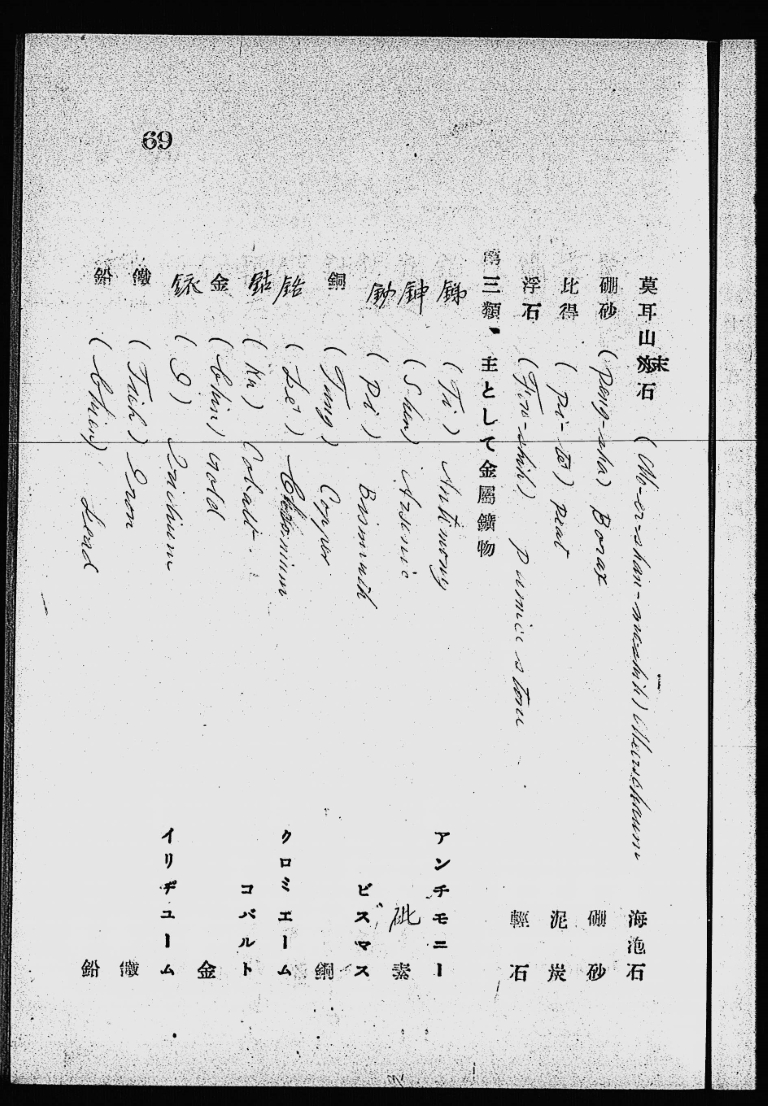 69
莫耳山沫石 (Mo-er-shan-mo-shih) Meerschaum 海泡石
硼砂 (Peng-sha) Borax 硼砂
比得 (Pi-te) Peat 泥炭
浮石 (Fou-shih) Pumice stone 輕石
第三類、主として金屬鑛物
銻 (Ti) Antimony アンチモニー
鉮 (Shen) Arsenic 砒素
鉍 (Pi) Bismuth ビスマス
銅 (Tung) Copper 銅
鉻 (Le) Chromium クロミエーム
鈷 (Ku) Cobalt コバルト
金 (Chin) Gold 金
銥 (I) Iridium イリヂューム
鐵 (Tieh) Iron 鐵
鉛 (Chien) Lead 鉛